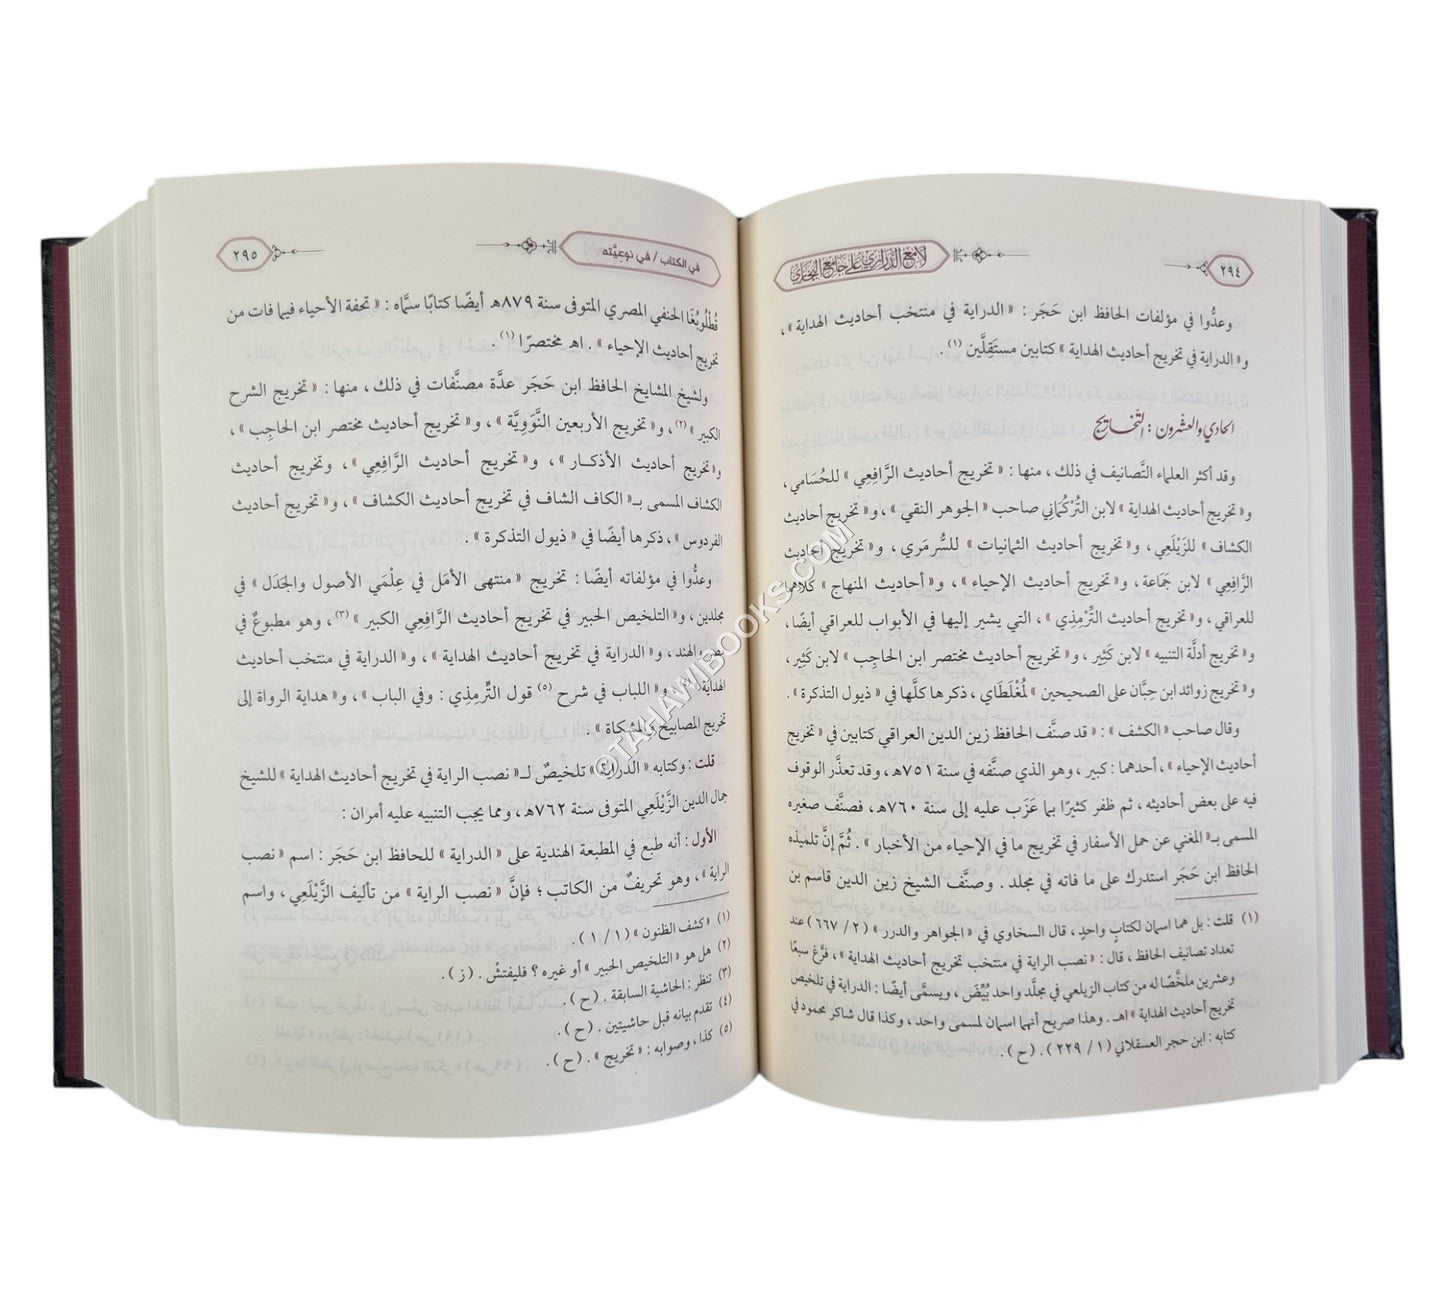 ٢٩٤
لامع الدراري على جامع البخاري
وعدُّوا في مؤلفات الحافظ ابن حَجَر : « الدراية في منتخب أحاديث الهداية » ،
و« الدراية في تخريج أحاديث الهداية » كتابين مستَقِلَّين (١) .
الحادي والعشرون : التخاريج
وقد أكثر العلماء التَّصانيف في ذلك ، منها : « تخريج أحاديث الرَّافِعِي » للحُسَامي ،
و« تخريج أحاديث الهداية » لابن التُّرْكُمَاني صاحب « الجوهر النقي » ، و« تخريج أحاديث
الكشاف » للزَيْلَعِي ، و« تخريج أحاديث الثمانيات » للسُّرمَري ، و« تخريج أحاديث
الرَّافِعِي » لابن جَمَاعة ، و« تخريج أحاديث الإحياء » ، و« أحاديث المنهاج » كلاهما
للعراقي ، و« تخريج أحاديث التِّرْمِذِي » ، التي يشير إليها في الأبواب للعراقي أيضًا ،
و« تخريج أدلَّة التنبيه » لابن كَثِير ، و« تخريج أحاديث مختصر ابن الحاجِب » لابن كَثِير ،
و« تخريج زوائد ابن حِبَّان على الصحيحين » لمُغْلَطَاي ، ذكرها كلَّها في « ذيول التذكرة » .
وقال صاحب « الكشف » : « قد صنَّف الحافظ زين الدين العراقي كتابين في « تخريج
أحاديث الإحياء » ، أحدهما : كبير ، وهو الذي صنَّفه في سنة ٧٥١هـ ، وقد تعذَّر الوقوف
فيه على بعض أحاديثه ، ثم ظفر كثيرًا بما عَزَب عليه إلى سنة ٧٦٠هـ ، فصنَّف صغيره
المسمى بـ« المغني عن حمل الأسفار في تخريج ما في الإحياء من الأخبار » . ثُمَّ إنَّ تلميذه
الحافظ ابن حَجَر استدرك على ما فاته في مجلد . وصنَّف الشيخ زين الدين قاسم بن
(١) قلت : بل هما اسمان لكتابٍ واحدٍ ، قال السخاوي في « الجواهر والدرر » (٢ / ٦٦٧) عند
تعداد تصانيف الحافظ ، قال : « نصب الراية في منتخب تخريج أحاديث الهداية » ، فرَّغ سبعًا
وعشرين ملخَّصًا له من كتاب الزيلعي في مجلَّد واحد بُيِّضَ ، ويسمَّى أيضًا : الدراية في تلخيص
تخريج أحاديث الهداية » اهـ . وهذا صريح أنهما اسمان لمسمى واحد ، وكذا قال شاكر محمود في
كتابه : ابن حجر العسقلاني (١ / ٢٢٩) . (ح) .
في الكتاب / في نوعيَّته
٢٩٥
قُطْلُوبُغَا الحنفي المصري المتوفى سنة ٨٧٩هـ أيضًا كتابًا سمَّاه : « تحفة الأحياء فيما فات من
تخريج أحاديث الإحياء » . اهـ مختصرًا (١) .
ولشيخ المشايخ الحافظ ابن حَجَر عدَّة مصنَّفات في ذلك ، منها : « تخريج الشرح
الكبير » (٢) ، و« تخريج الأربعين النَّوَوِيَّة » ، و« تخريج أحاديث مختصر ابن الحاجِب » ،
و« تخريج أحاديث الأذكـار » ، و« تخريج أحاديث الرَّافِعِي » ، وتخريج أحاديث
الكشاف المسمى بـ« الكاف الشاف في تخريج أحاديث الكشاف » ، و« تخريج أحاديث
الفردوس » ، ذكرها أيضًا في « ذيول التذكرة » .
وعدُّوا في مؤلفاته أيضًا : تخريج « منتهى الأمَل في عِلْمَي الأصول والجَدَل » في
مجلدين ، و« التلخيص الحبير في تخريج أحاديث الرَّافِعِي الكبير » (٣) ، وهو مطبوعٌ في
مصر والهند ، و« الدراية في تخريج أحاديث الهداية » ، و« الدراية في منتخب أحاديث
الهداية » ، و« اللباب في شرح (٥) قول التِّرمِذي : وفي الباب » ، و« هداية الرواة إلى
تخريج المصابيح والمشكاة » .
قلت : وكتابه « الدراية » تلخيصٌ لـ« نصب الراية في تخريج أحاديث الهداية » للشيخ
جمال الدين الزَّيْلَعِي المتوفى سنة ٧٦٢هـ ، ومما يجب التنبيه عليه أمران :
الأول : أنه طبع في المطبعة الهندية على « الدراية » للحافظ ابن حَجَر : اسم « نصب
الراية » ، وهو تحريفٌ من الكاتب ؛ فإنَّ « نصب الراية » من تأليف الزَّيْلَعِي ، واسم
(١) « كشف الظنون » (١ / ١) .
(٢) هل هو « التلخيص الحبير » أو غيره ؟ فليفتشْ . (ز) .
(٣) تنظر : الحاشية السابقة . (ح) .
(٤) تقدم بيانه قبل حاشيتين . (ح) .
(٥) كذا ، وصوابه : « تخريج » . (ح) .
©TAHAWIBOOKS.COM